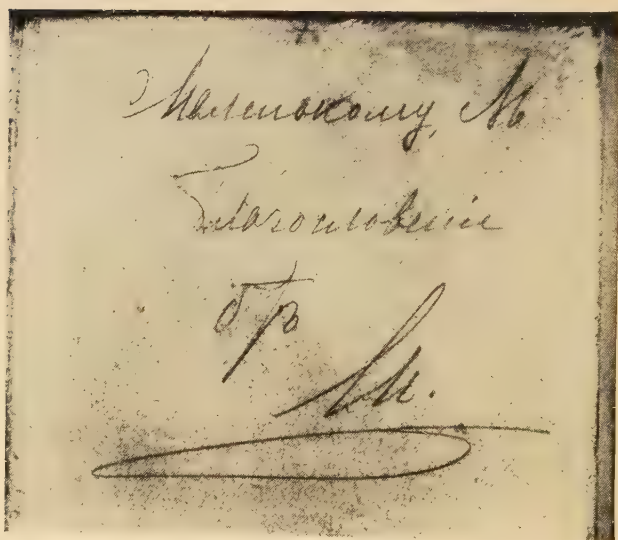 Маленькому М
Благословеніе
бр